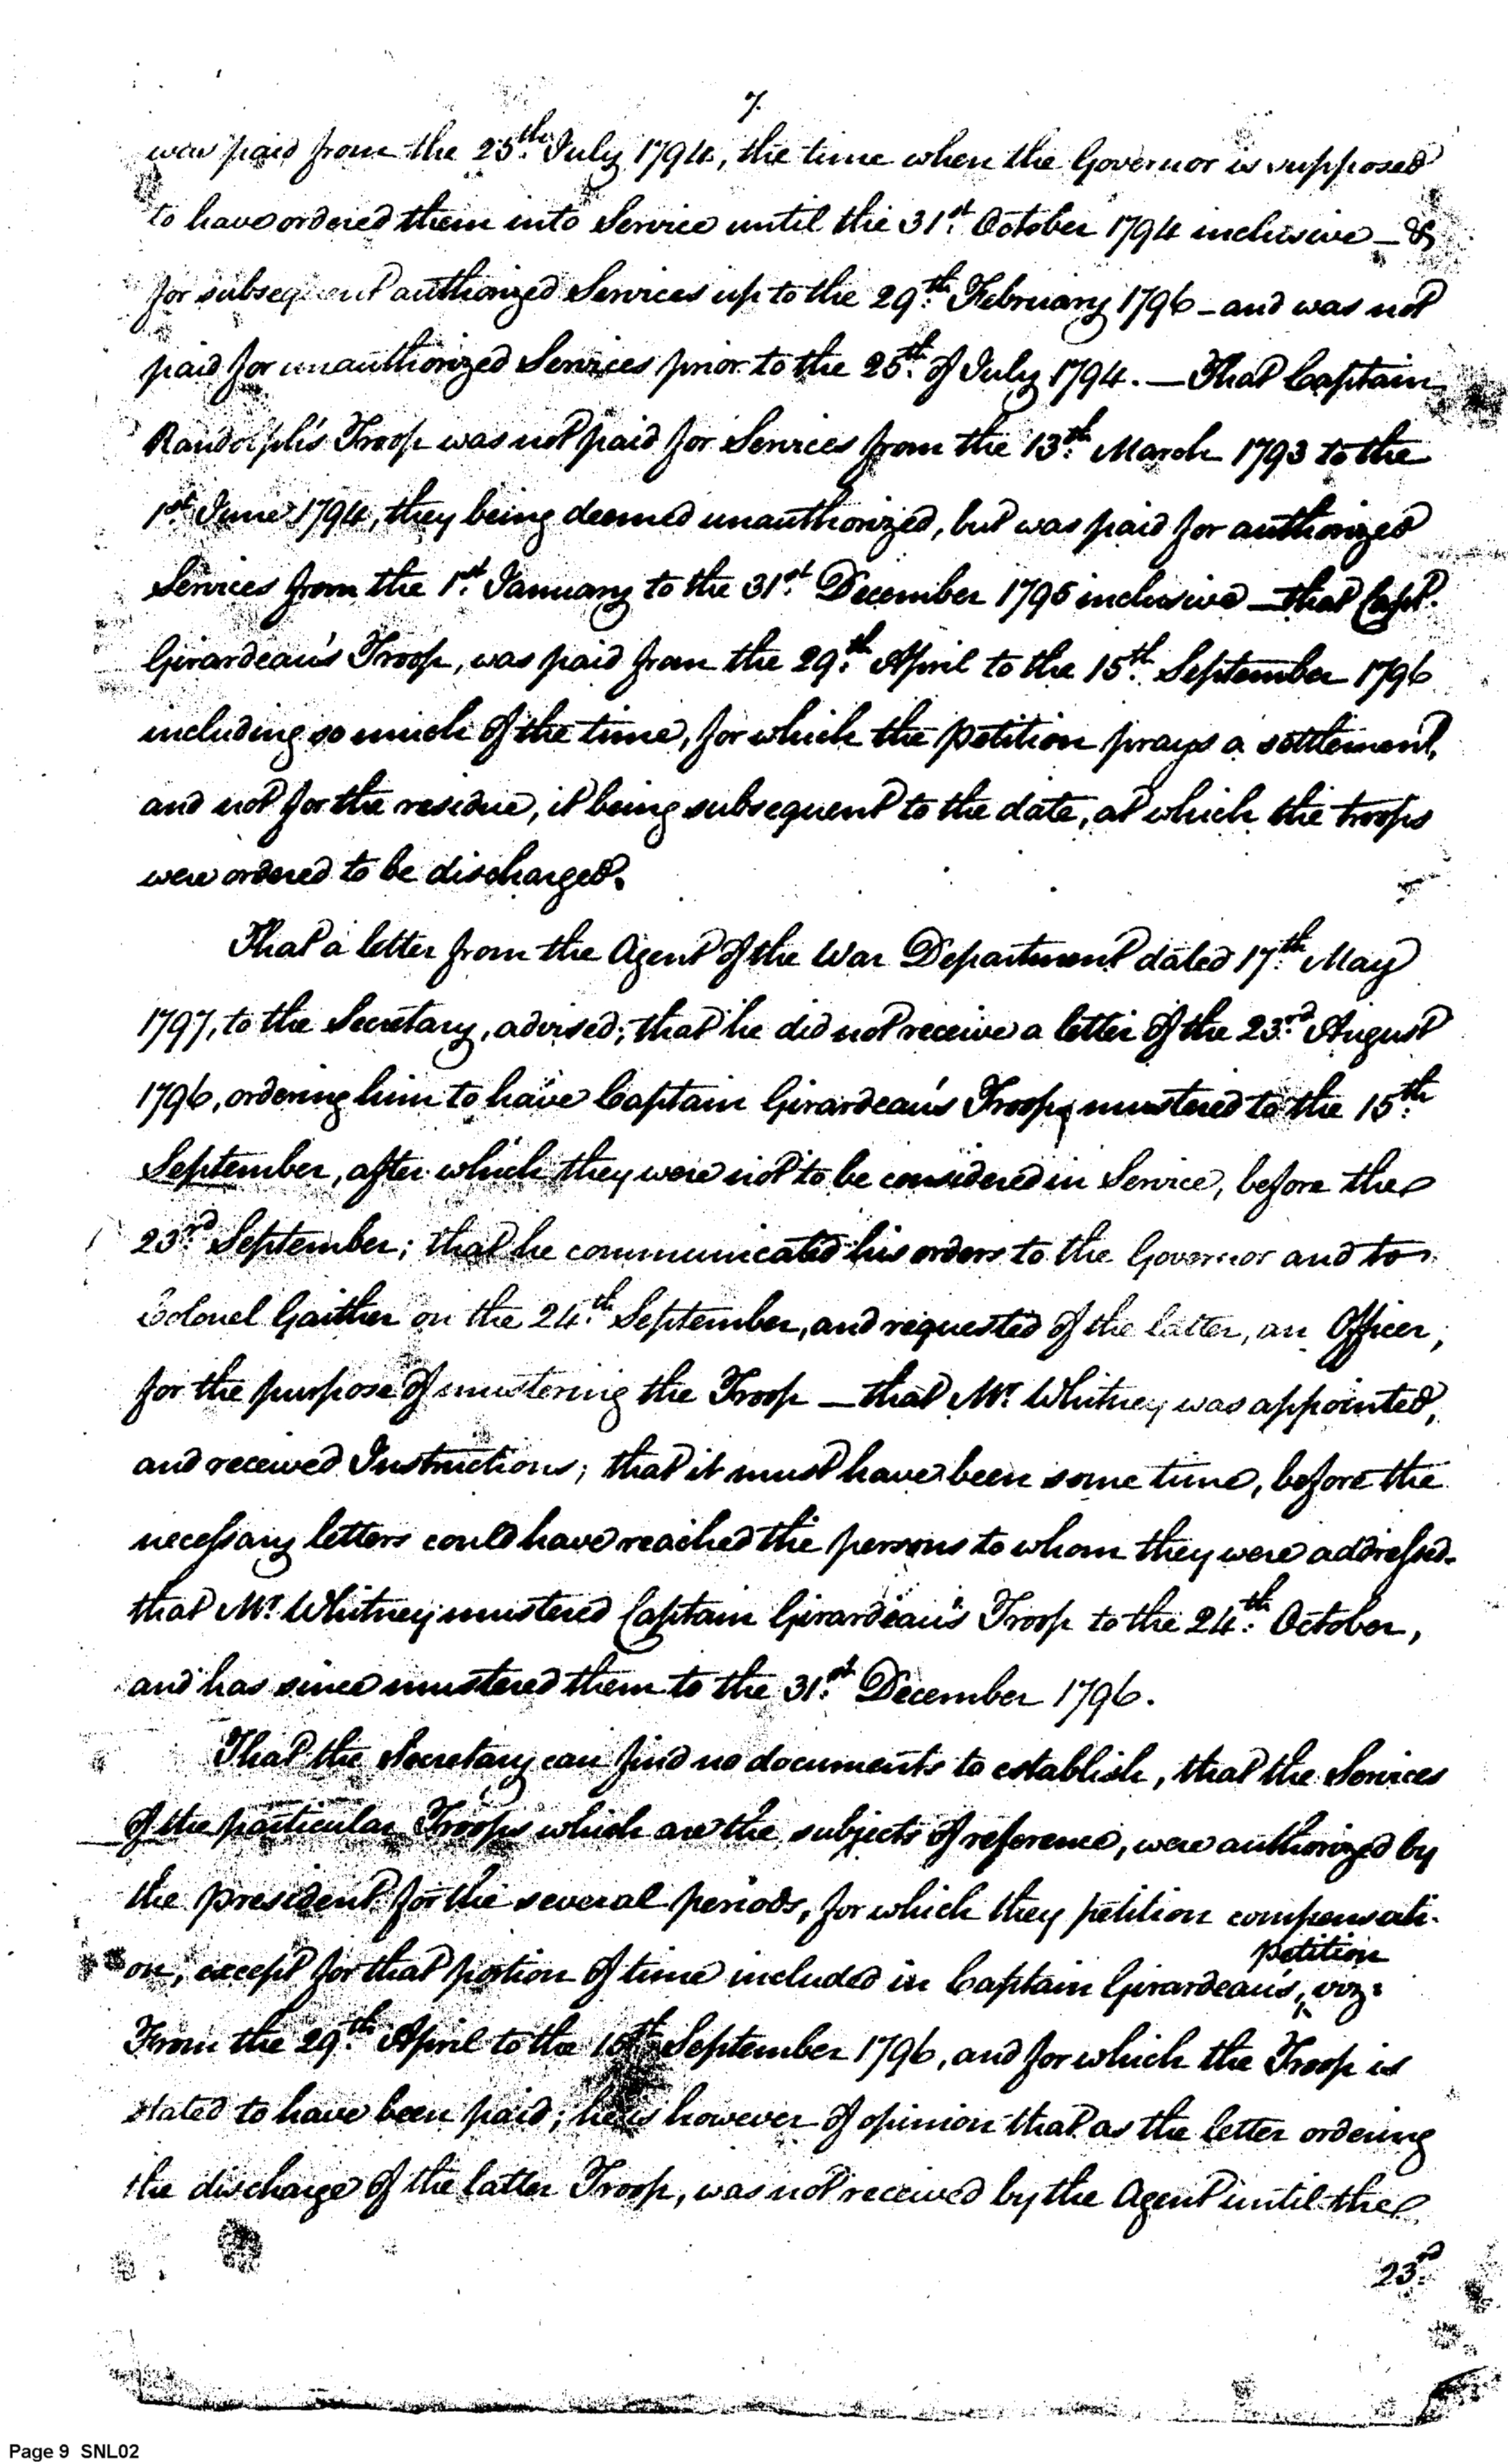 7.
was paid from the 25th. July 1794, the time when the Governor is supposed
to have ordered them into Service until the 31st. October 1794 inclusive – &
for subsequent authorized Services up to the 29th. February 1796 – and was not
paid for unauthorized Services prior to the 25th. of July 1794. — That Captain
Randolph's Troop was not paid for Services from the 13th. March 1793 to the
1st. June 1794, they being deemed unauthorized, but was paid for authorized
Services from the 1st. January to the 31st. December 1795 inclusive — that Capt.
Girardeau's Troop, was paid from the 29th. April to the 15th. September 1796
including so much of the time, for which the petition prays a settlement,
and not for the residue, it being subsequent to the date, at which the troops
were ordered to be discharged.
That a letter from the Agent of the War Department dated 17th. May
1797, to the Secretary, advised; that he did not receive a letter of the 23rd. August
1796, ordering him to have Captain Girardeau's Troop mustered to the 15th.
September, after which they were not to be considered in Service, before the
23rd. September; that he communicated his orders to the Governor and to
Colonel Gaither on the 24th. September, and requested of the latter, an Officer,
for the purpose of mustering the Troop — that Mr. Whitney was appointed,
and received Instructions; that it must have been some time, before the
necessary letters could have reached the persons to whom they were addressed.
that Mr. Whitney mustered Captain Girardeau's Troop to the 24th. October,
and has since mustered them to the 31st. December 1796.
That the Secretary can find no documents to establish, that the Services
of the particular Troops which are the subjects of reference, were authorized by
the president for the several periods, for which they petition compensati-
petition
on, except for that portion of time included in Captain Girardeau's, viz:
From the 29th. April to the 15th September 1796, and for which the Troop is
stated to have been paid; he is however of opinion that as the letter ordering
the discharge of the latter Troop, was not received by the Agent until the
23rd.
Page 9 SNL02